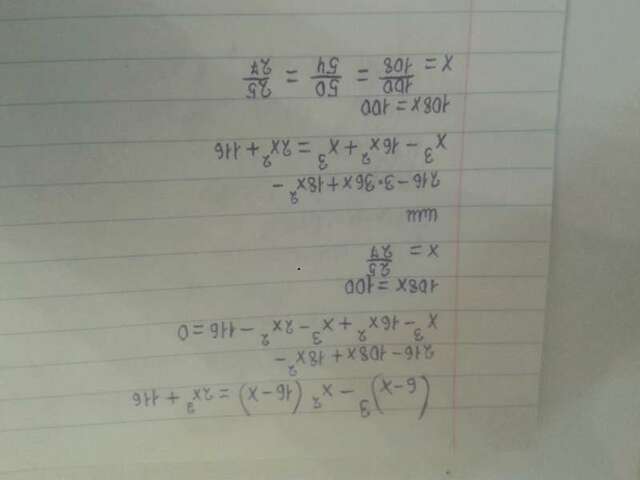 (6-x)³ - x² (16-x) = 2x² + 116
216 - 108x + 18x² -
x³ - 16x² + x³ - 2x² - 116 = 0
108x = 100
x = 25/27
или
216 - 3·36x + 18x² -
x³ - 16x² + x³ = 2x² + 116
108x = 100
x = 100/108 = 50/54 = 25/27